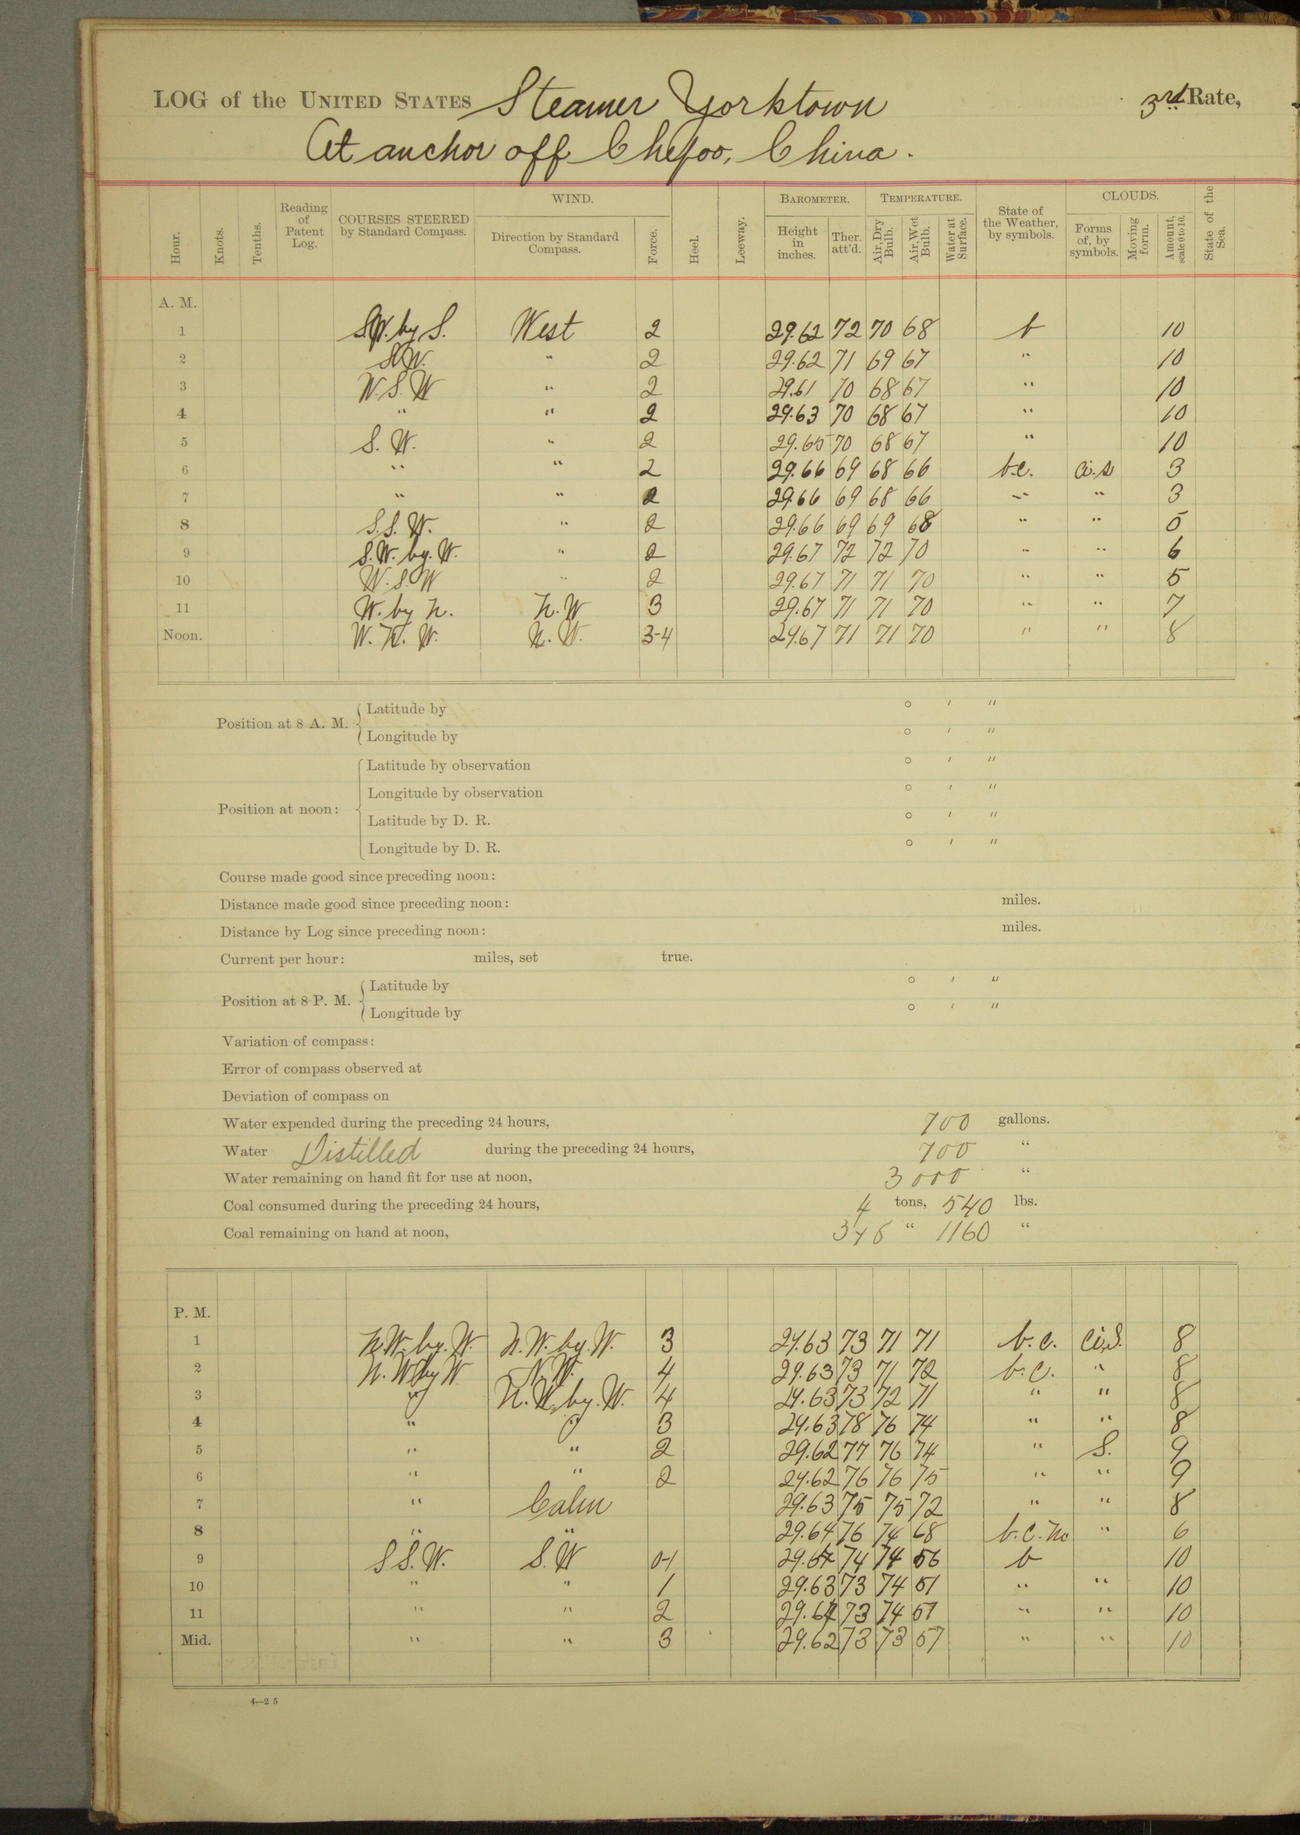 LOG of the UNITED STATES Steamer Yorktown 3rd Rate,
At anchor off Chefoo, China.
Hour. Knots. Tenths. Reading of Patent Log. COURSES STEERED by Standard Compass. WIND. Direction by Standard Compass. Force. Heel. Leeway. BAROMETER. Height in inches. Ther. att'd. TEMPERATURE. Air, Dry Bulb. Air, Wet Bulb. Water at Surface. State of the Weather, by symbols. CLOUDS. Forms of, by symbols. Moving form. Amount, scale 0 to 10. State of the Sea.
A. M.
1 S.W. by S. West 2 29.62 72 70 68 b 10
2 S.W. " 2 29.62 71 69 67 " 10
3 W.S.W " 2 29.61 70 68 67 " 10
4 " " 2 29.63 70 68 67 " 10
5 S.W. " 2 29.65 70 68 67 " 10
6 " " 2 29.66 69 68 66 b.c. ci.s 3
7 " " 2 29.66 69 68 66 " " 3
8 S.S.W. " 2 29.66 69 69 68 " " 5
9 S.W. by. W. " 2 29.67 72 72 70 " " 6
10 W.S.W " 2 29.67 71 71 70 " " 5
11 W. by N. N.W 3 29.67 71 71 70 " " 7
Noon. W.N.W. N.W. 3-4 29.67 71 71 70 " " 8
Position at 8 A. M. Latitude by ° ′ ″
Longitude by ° ′ ″
Position at noon: Latitude by observation ° ′ ″
Longitude by observation ° ′ ″
Latitude by D. R. ° ′ ″
Longitude by D. R. ° ′ ″
Course made good since preceding noon:
Distance made good since preceding noon: miles.
Distance by Log since preceding noon: miles.
Current per hour: miles, set true.
Position at 8 P. M. Latitude by ° ′ ″
Longitude by ° ′ ″
Variation of compass:
Error of compass observed at
Deviation of compass on
Water expended during the preceding 24 hours, 700 gallons.
Water Distilled during the preceding 24 hours, 700 "
Water remaining on hand fit for use at noon, 3000 "
Coal consumed during the preceding 24 hours, 4 tons, 540 lbs.
Coal remaining on hand at noon, " 1160 "
P. M.
1 N.W. by. W. N.W. by. W. 3 29.63 73 71 71 b.c. Ci.S. 8
2 N.W by W N.W. 4 29.63 73 71 72 b.c. " 8
3 " N.W. by. W. 4 29.63 73 72 71 " " 8
4 " " 3 29.63 78 76 74 " " 8
5 " " 2 29.62 77 76 74 " S. 9
6 " " 2 29.62 76 76 75 " " 9
7 " Calm 29.63 75 75 72 " " 8
8 " " 29.64 76 74 68 b.c.m " 6
9 S S.W. S.W 0-1 29.64 74 74 56 b 10
10 " " 1 29.63 73 74 51 " " 10
11 " " 2 29.64 73 74 57 " " 10
Mid. " " 3 29.62 73 73 57 " " 10
4—2 5